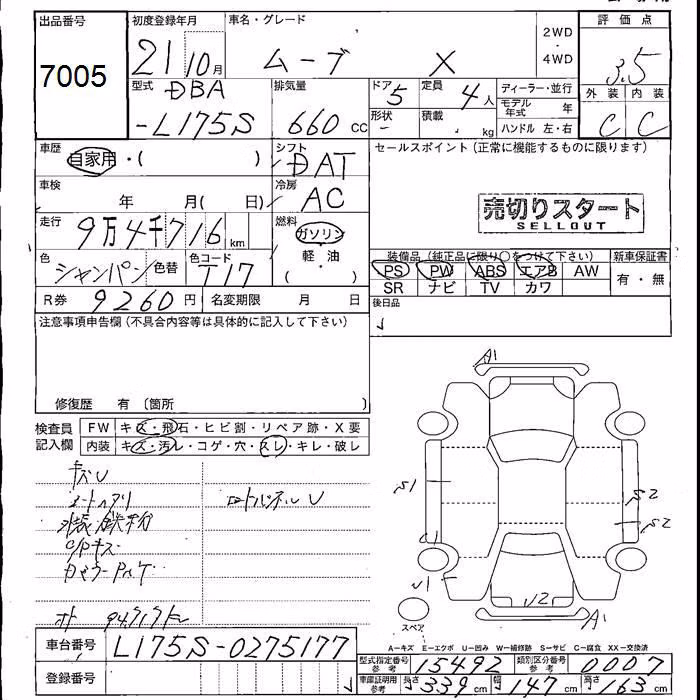 出品番号
7005
初度登録年月
21 10月
車名・グレード
ムーブ X
2WD
・
4WD
評価点
3.5
型式
DBA
-L175S
排気量
660 cc
ドア 5
形状 -
定員 4人
積載 . kg
ディーラー・並行
モデル年式 年
ハンドル 左・右
外装 内装
C C
車歴
自家用・( )
シフト
DAT
車検
年 月( 日)
冷房
AC
走行
9万4千716 km
燃料
ガソリン
・
軽・油
( )
色
シャンパン
色替
色コード
T17
R券 9260円
名変期限 月 日
セールスポイント(正常に機能するものに限ります)
売切りスタート
SELLOUT
装備品(純正品に限り〇をつけて下さい)
新車保証書
PS PW ABS エアB AW
SR ナビ TV カワ
有・無
後日品
注意事項申告欄(不具合内容等は具体的に記入して下さい)
修復歴 有〔箇所 〕
検査員
記入欄
FW キズ・飛石・ヒビ割・リペア跡・X要
内装 キズ・汚レ・コゲ・穴・スレ・キレ・破レ
キズU
外装鉄粉
C/Pキズ
ロードパネルU
94717K
A1
S1
S2
S2
U1
U2
A1
スペア
車台番号 L175S-0275177
登録番号
A-キズ E-エクボ U-凹み W-補修跡 S-サビ C-腐食 XX-交換済
型式指定番号 参考 15492
類別区分番号 参考 0007
車庫証明用 参考 長さ 339cm 幅 147cm 高さ 163cm